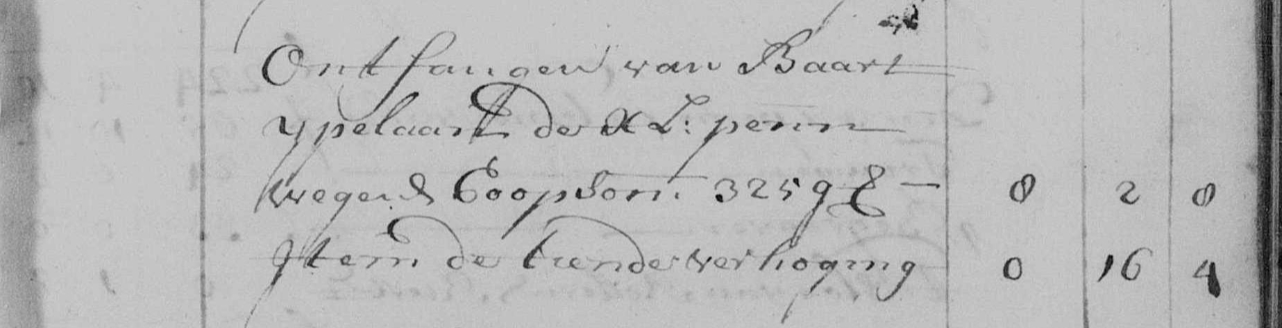 Ontfangen van Baart
ypelaart de XL: penn
wegens Coopsom 325 g – 8 2 8
Item de tiende verhoging 0 16 4